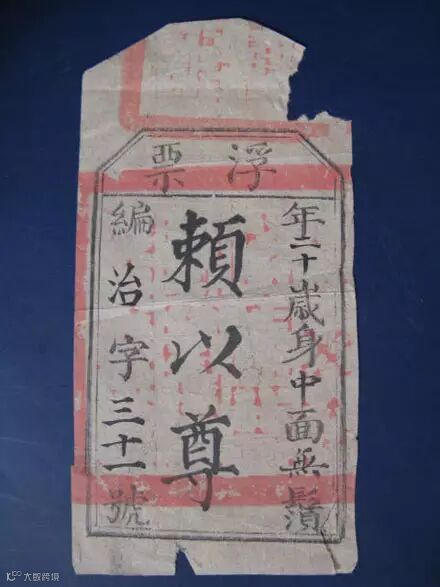 浮票
年二十歲身中面無鬚
賴以尊
編治字三十一號
大數跨境